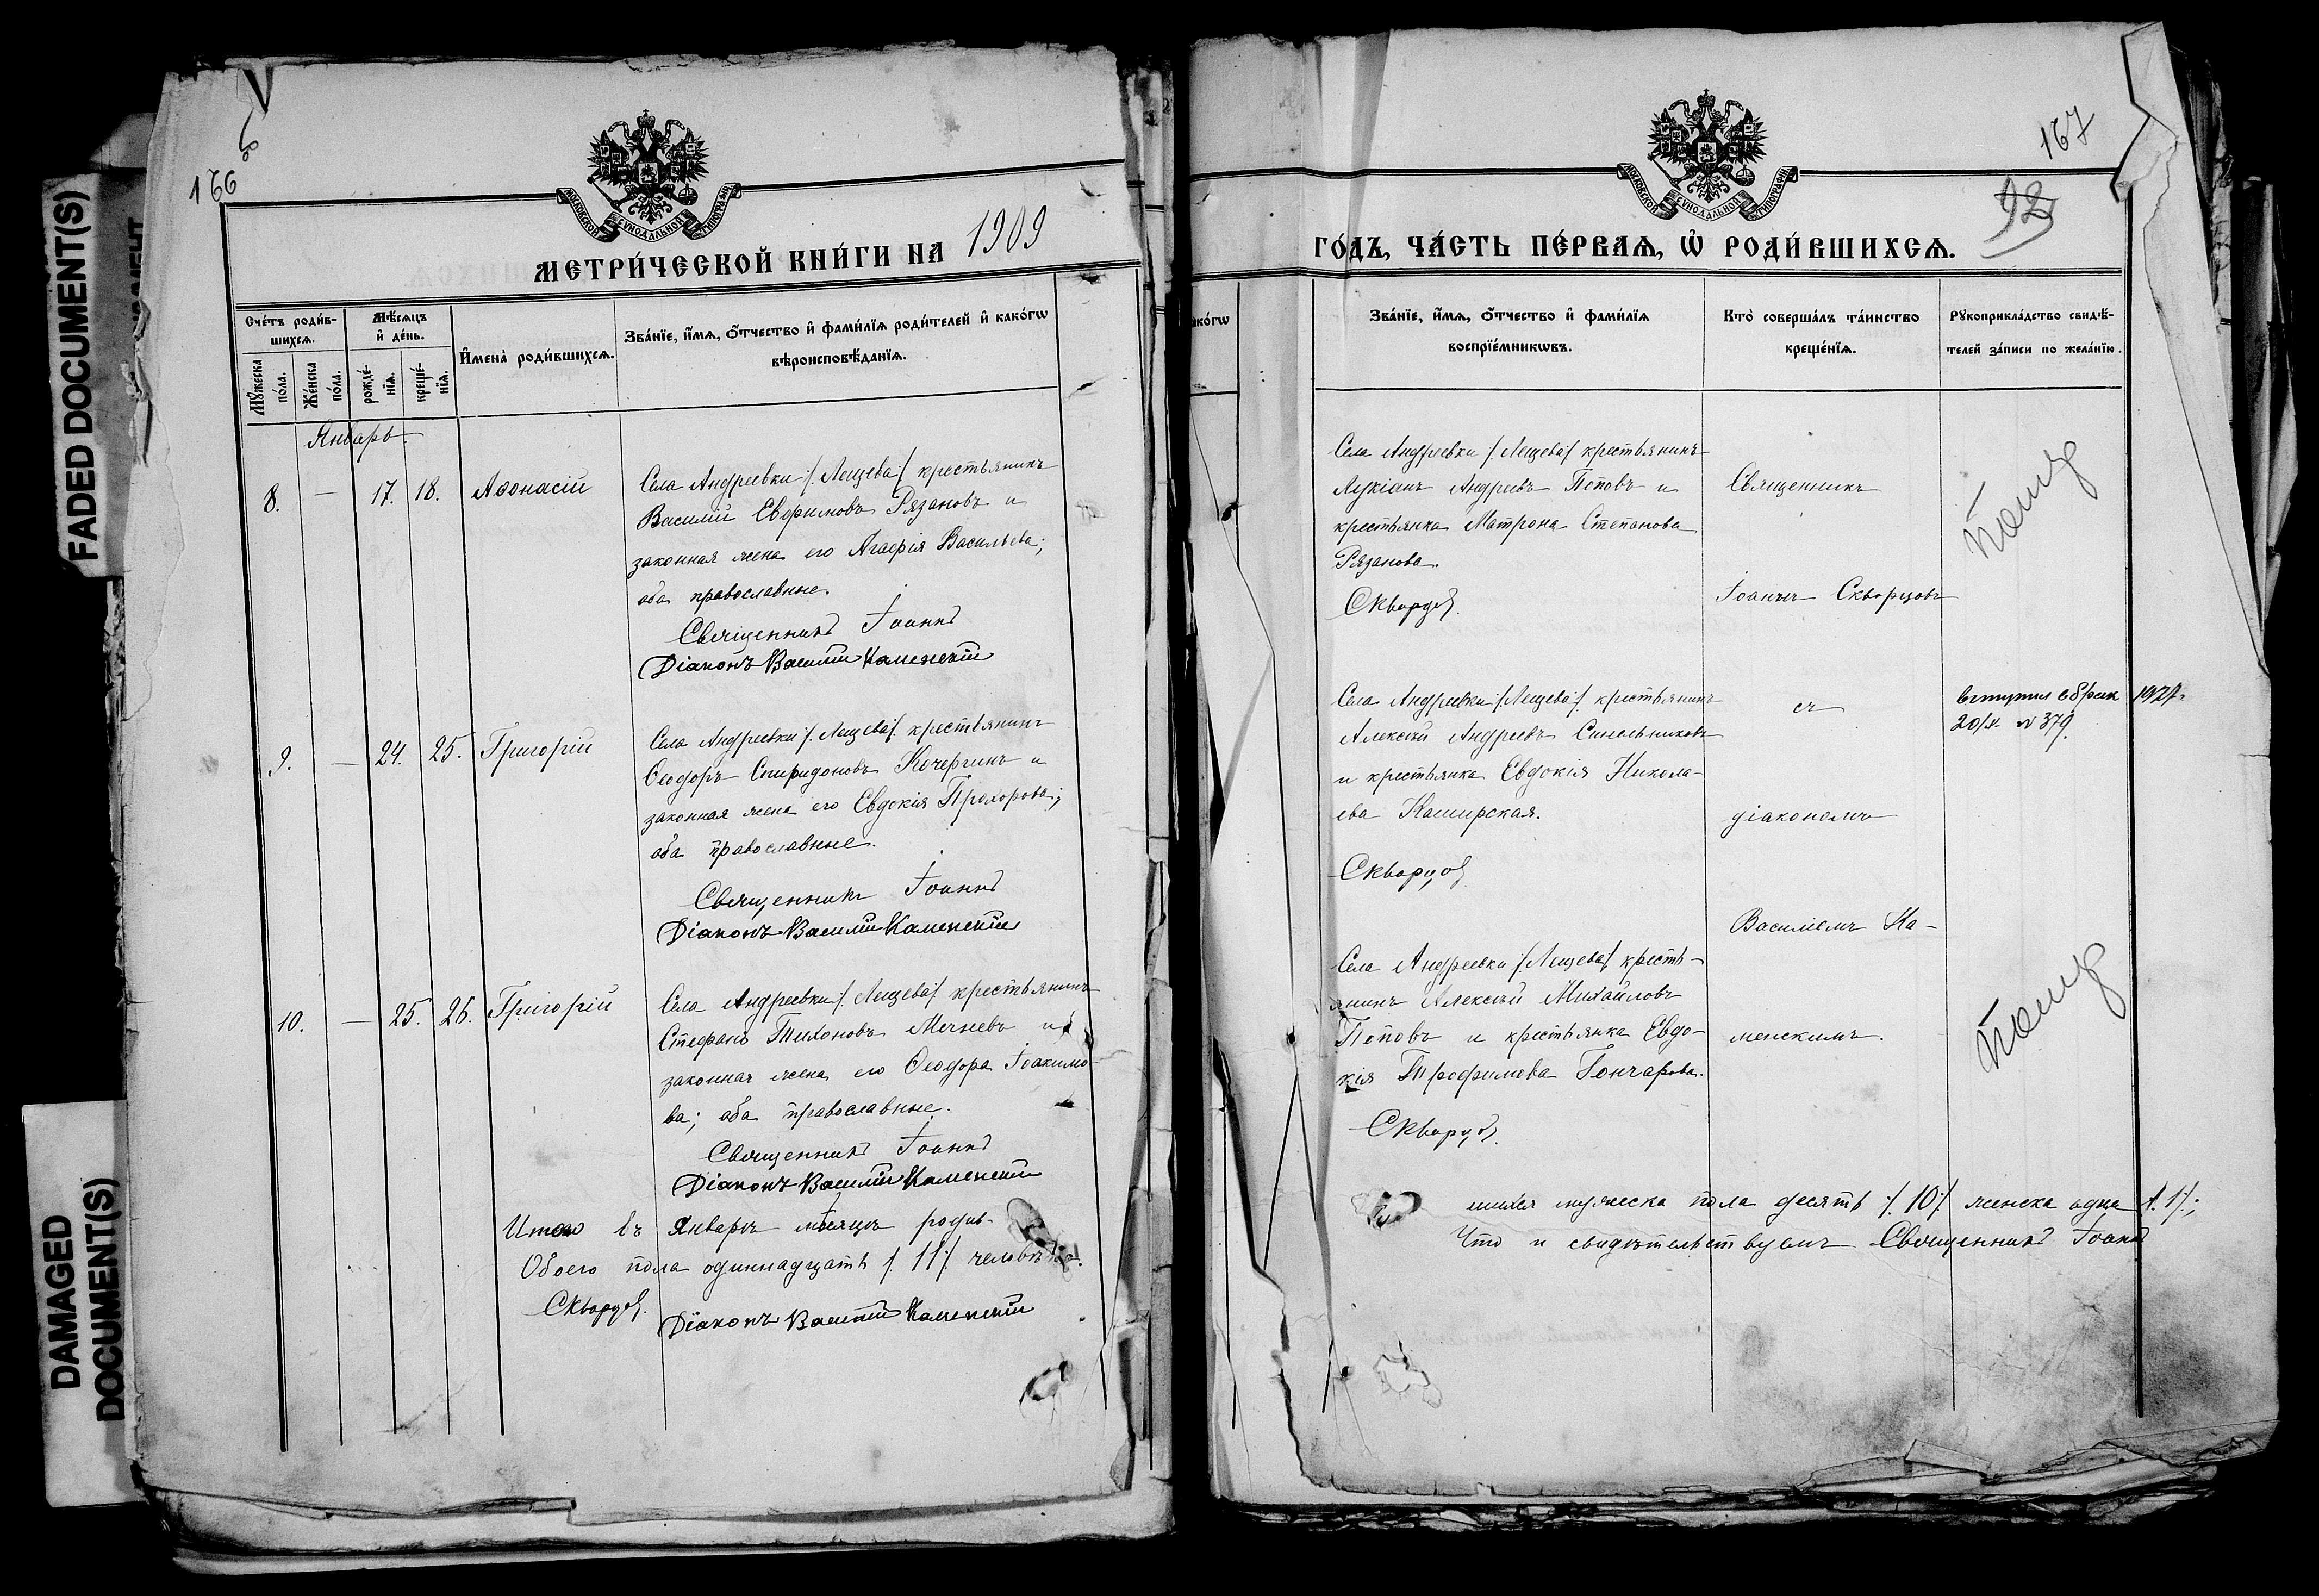 FADED DOCUMENT(S)
DAMAGED
DOCUMENT(S)
166
МОСКОВСКОЙ СѴНОДАЛЬНОЙ ТИПОГРАФІИ
МЕТРИ́ЧЕСКОЙ КНИ́ГИ НА 1909
Сче́тъ роди́в-
шихсѧ.
Мѣ́сѧцъ
и҆ де́нь.
Мꙋ́жеска
по́ла.
Же́нска
по́ла.
рожде́-
нїѧ.
креще́-
нїѧ.
И҆мена̀ роди́вшихсѧ.
Зва́нїе, и҆́мѧ, ѻ҆́тчество и҆ фами́лїѧ роди́телей и҆ како́гѡ
вѣроисповѣ́данїѧ.
Январь.
8. — 17. 18. Аѳонасій
Села Андреевки /.Лещева/. крестьянинъ
Василій Евфимовъ Рязановъ и
законная жена его Агафія Васильева;
оба православные.
Священникъ Іоаннъ
Діаконъ Василій Каменскій
9. — 24. 25. Григорій
Села Андреевки /.Лещева/. крестьянинъ
Ѳеодоръ Спиридоновъ Кочергинъ и
законная жена его Евдокія Прохорова;
оба православные.
Священникъ Іоаннъ
Діаконъ Василій Каменскій
10. — 25. 26. Григорій
Села Андреевки /.Лещева/. крестьянинъ
Стефанъ Тихоновъ Мячневъ и
законная жена его Ѳеодора Іоакимо-
ва; оба православные.
Священникъ Іоаннъ
Діаконъ Василій Каменскій
Итого въ Январѣ мѣсяцѣ родив-
Обоего пола одиннадцать /.11/. человѣкъ.
Скворцовъ.
Діаконъ Василій Каменскій
167
92
МОСКОВСКОЙ СѴНОДАЛЬНОЙ ТИПОГРАФІИ
ГО́ДЪ, ЧА́СТЬ ПЕ́РВАѦ, Ѽ РОДИ́ВШИХСѦ.
како́гѡ
Зва́нїе, и҆́мѧ, ѻ҆́тчество и҆ фами́лїѧ
воспрїе́мникѡвъ.
Кто̀ соверша́лъ та́инство
креще́нїѧ.
Рꙋкоприкла́дство свидѣ́-
телей за́писи по жела́нїю.
Села Андреевки /.Лещева/. крестьянинъ
Лукіанъ Андреевъ Поповъ и
крестьянка Матрона Степанова
Рязанова.
Скворцовъ.
Священникъ
Іоаннъ Скворцовъ
съ
діакономъ
Василіемъ Ка-
менскимъ.
Села Андреевки /.Лещева/. крестьянинъ
Алексѣй Андреевъ Сиводьниковъ
и крестьянка Евдокія Никола-
ева Каширская.
Скворцовъ
вступил в брак 1927г.
20/X № 379.
Села Андреевки /.Лещева/. кресть-
янинъ Алексѣй Михайловъ
Поповъ и крестьянка Евдо-
кія Трофимова Гончарова.
Скворцовъ.
шихся мужеска пола десять /.10/. женска одна /.1/.;
Что и свидѣтельствуемъ Священникъ Іоаннъ